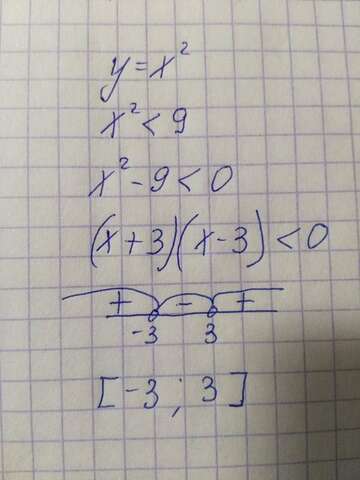 y = x²
x² < 9
x² - 9 < 0
(x + 3)(x - 3) < 0
+ - +
-3 3
[-3 ; 3]